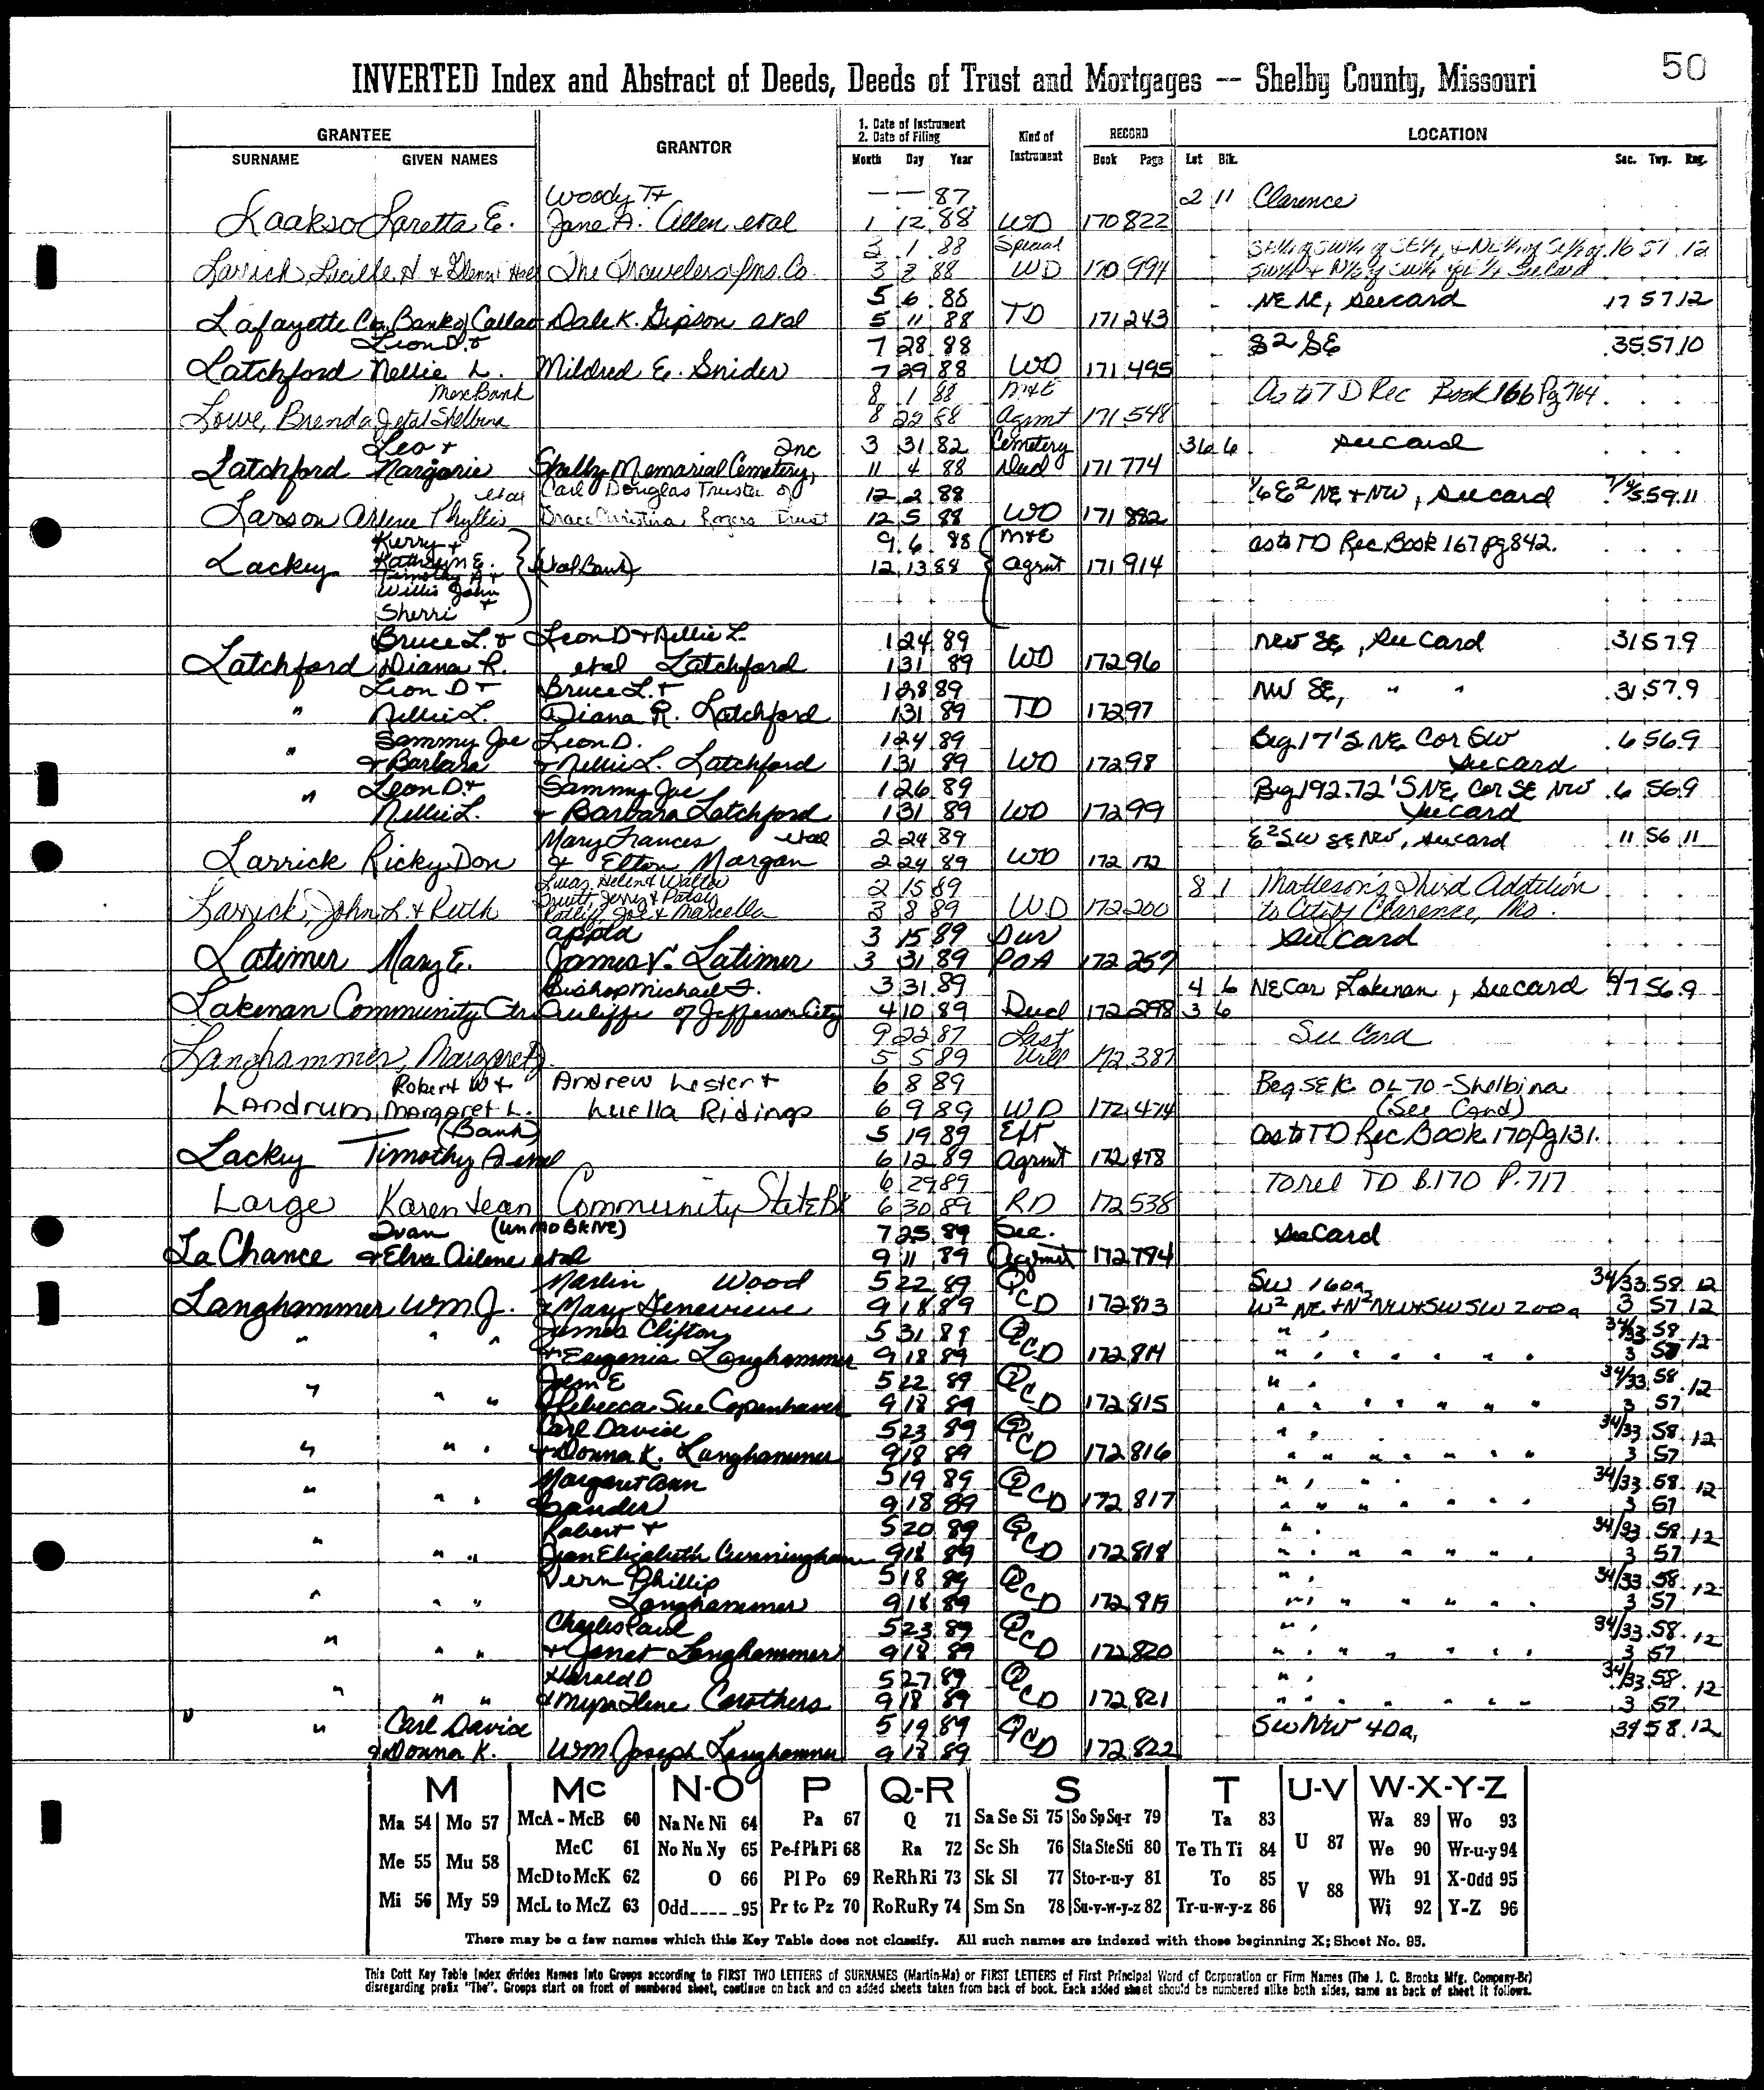 50
INVERTED Index and Abstract of Deeds, Deeds of Trust and Mortgages -- Shelby County, Missouri
GRANTEE GRANTOR 1. Date of Instrument 2. Date of Filing Kind of Instrument RECORD LOCATION
SURNAME GIVEN NAMES Month Day Year Book Page Lot Blk. Sec. Twp. Rng.
Woody T + — — 87 2 11 Clarence
Laakso Laretta E. Jane A. Allen etal 1 12 88 WD 170 822
3 1 88 Special 16 57 12
Larrick Lucille A + The Travelers Ins. Co. 3 2 88 WD 170 994 See Card
5 6 88 NE NE, see card 17 57 12
Lafayette Co. Bank of Callao Dale K. Gipson etal 5 11 88 TD 171 243
Leon D. + 7 28 88 S2 SE 35 57 10
Latchford Nellie L. Mildred E. Snider 7 29 88 WD 171 495
Merc Bank 8 1 88 M+E As to TD Rec Book 166 Pg 764
Lowe, Brenda J etal Shelbina 8 22 88 Agmt 171 548
Leo + Inc 3 31 82 Cemetery 36 6 see card
Latchford Margorie Shelby Memorial Cemetery, 11 4 88 Deed 171 774
etal Carl Douglas Trustee of 12 2 88 1/6 E2 NE + NW, see card 59 11
Larson Arlene Phyllis Grace Christina Rogers Trust 12 5 88 WD 171 882
Kerry + 9 6 88 M+E as to TD Rec. Book 167 pg 842.
Lackey Kathryn E. (Bank) 12 13 88 agmt 171 914
Timothy A +
Willis John
Sherri +
Bruce L. + Leon D + Nellie L. 1 24 89 NW SE, see Card 31 57 9
Latchford Diana R. etal Latchford 1 31 89 WD 172 96
Leon D + Bruce L. + 1 28 89 NW SE, " " 31 57 9
" Nellie L. Diana R. Latchford 1 31 89 TD 172 97
Sammy Joe Leon D. 1 24 89 Beg 17' S NE Cor SW 6 56 9
" + Barbara + Nellie L. Latchford 1 31 89 WD 172 98 see card
" Leon D. + Sammy Joe 1 26 89 Beg 192.72' S NE Cor SE NW 6 56 9
Nellie L. + Barbara Latchford 1 31 89 WD 172 99 see card
Mary Frances etal 2 24 89 E2 SW SE NW, see card 11 56 11
Larrick Ricky Don + Elton Morgan 2 24 89 WD 172 172
Lucas, Helen + Walter 2 15 89 8 1 Matteson's Third Addition
Pruitt, Jerry + Patsy
Larrick, John L. + Ruth Ratliff, Joe + Marcella 3 8 89 WD 172 200 to City of Clarence, Mo.
appt'd 3 15 89 Dur see Card
Latimer Mary E. James V. Latimer 3 31 89 POA 172 257
Bishop Michael F. 3 31 89 4 6 NE Cor Lakenan, see card 6/7 56 9
Lakenan Community Ctr. of Jefferson City 4 10 89 Deed 172 298 3 6
9 22 87 Last See Card
Langhammer, Margaret 5 5 89 Will 172 387
Robert W + Andrew Lester + 6 8 89 Beg SE/c OL 70 - Shelbina
Landrum Margaret L. Luella Ridings 6 9 89 WD 172 474 (See Card)
(Bank) 5 19 89 Eft as to TD Rec Book 170 pg 131.
Lackey Timothy A etal 6 12 89 Agrmt 172 478
6 29 89 To rel TD B.170 P. 717
Large Karen Jean Community State Bk 6 30 89 RD 172 538
Ivan (Un Mo Bk NE) 7 25 89 Sec. see Card
La Chance + Elva Ailene etal 9 11 89 Agrmt 172 794
Marlin Wood 5 22 89 Q SW 160a 34/33 58 12
Langhammer Wm J. + Mary Genevieve 9 18 89 CD 172 813 W2 NE + N2 NW + SW SW 200a 3 57 12
James Clifton 5 31 89 Q " 34/33 58 12
" " " + Eugenia Langhammer 9 18 89 CD 172 814 " " " " " " " 3 57
John E 5 22 89 Q " 34/33 58 12
" " " Rebecca Sue Copenhaver 9 18 89 CD 172 815 " " " " " " " 3 57
Carl David 5 23 89 Q " 34/33 58 12
" " " + Donna K. Langhammer 9 18 89 CD 172 816 " " " " " " " 3 57
Margaret Ann 5 19 89 Q " 34/33 58 12
" " " Sander 9 18 89 CD 172 817 " " " " " " " 3 57
Robert + 5 20 89 Q " 34/33 58 12
" " " Jean Elizabeth Cunningham 9 18 89 CD 172 818 " " " " " " 3 57
Vern Phillip 5 18 89 Q " 34/33 58 12
" " " Langhammer 9 18 89 CD 172 819 " " " " " " 3 57
Charles Paul 5 23 89 Q " 34/33 58 12
" " " + Janet Langhammer 9 18 89 CD 172 820 " " " " " " 3 57
Harold D 5 27 89 Q " 34/33 58 12
" " " + Myra Ilene Carothers 9 18 89 CD 172 821 " " " " " " " 3 57
" Carl David 5 19 89 QCD SW NW 40a, 34 58 12
+ Donna K. Wm Joseph Langhammer 9 18 89 172 822
M Mc N-O P Q-R S T U-V W-X-Y-Z
Ma 54 Mo 57 McA - McB 60 Na Ne Ni 64 Pa 67 Q 71 Sa Se Si 75 So Sp Sq-r 79 Ta 83 U 87 Wa 89 Wo 93
Me 55 Mu 58 McC 61 No Nu Ny 65 Pe-f Ph Pi 68 Ra 72 Sc Sh 76 Sta Ste Sti 80 Te Th Ti 84 We 90 Wr-u-y 94
McD to McK 62 O 66 Pl Po 69 Re Rh Ri 73 Sk Sl 77 Sto-r-u-y 81 To 85 V 88 Wh 91 X-Odd 95
Mi 56 My 59 McL to McZ 63 Odd_ _ _ _ _95 Pr to Pz 70 Ro Ru Ry 74 Sm Sn 78 Su-v-w-y-z 82 Tr-u-w-y-z 86 Wi 92 Y-Z 96
There may be a few names which this Key Table does not classify. All such names are indexed with those beginning X; Sheet No. 95.
This Cott Key Table Index divides Names into Groups according to FIRST TWO LETTERS of SURNAMES (Martin-Ma) or FIRST LETTERS of First Principal Word of Corporation or Firm Names (The J. C. Brooks Mfg. Company-Br)
disregarding prefix "The". Groups start on front of numbered sheet, continue on back and on added sheets taken from back of book. Each added sheet should be numbered alike both sides, same as back of sheet it follows.